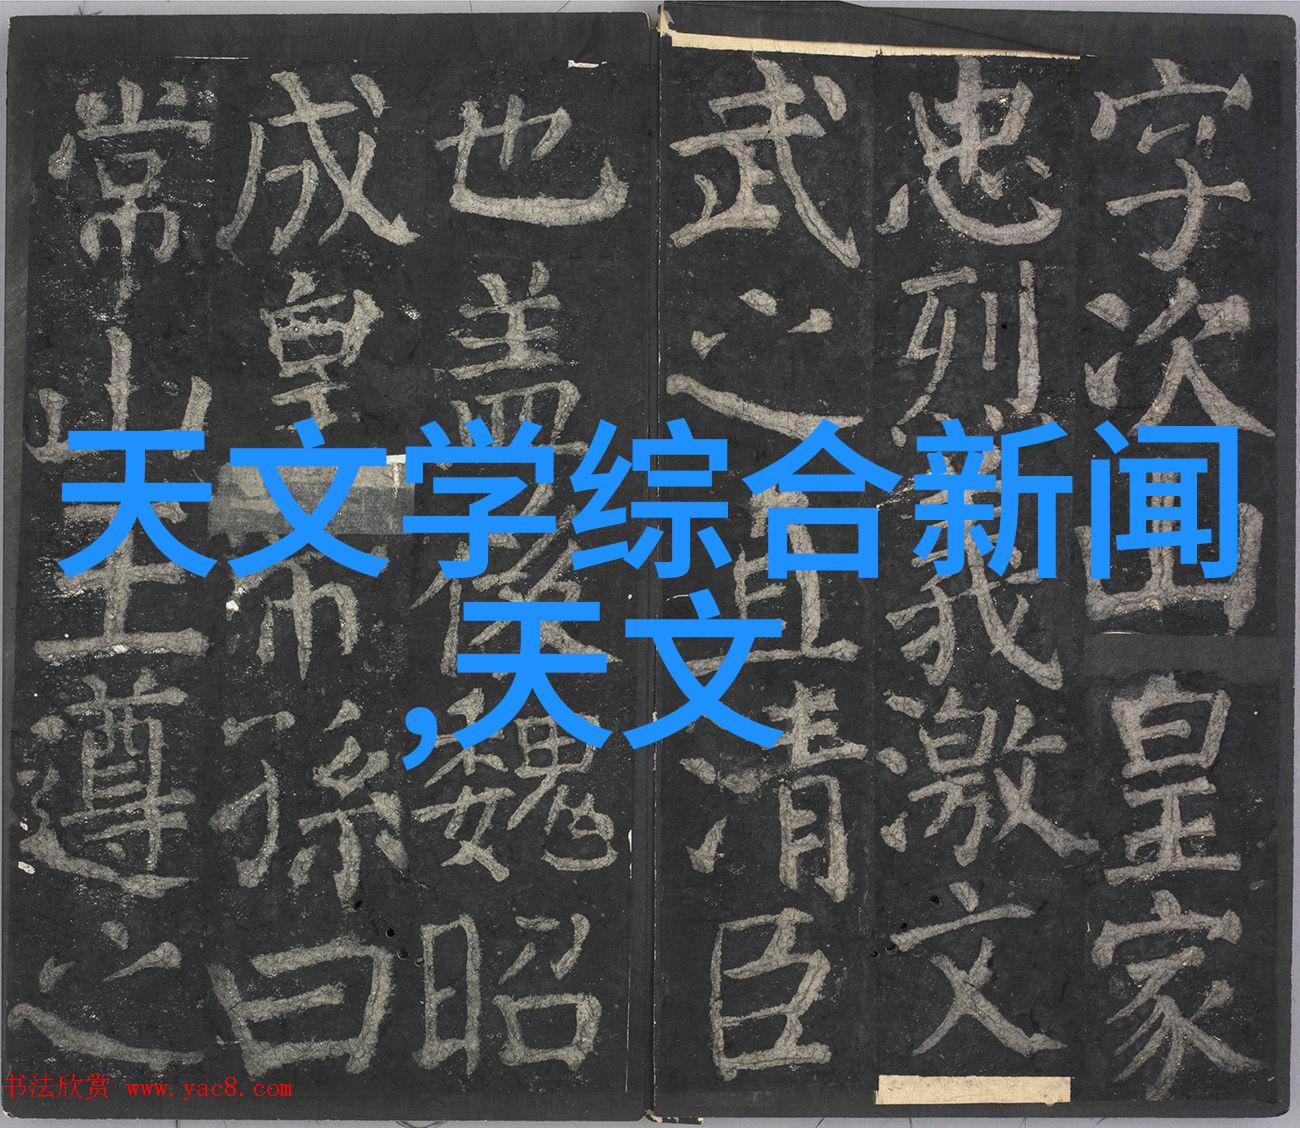 天文学综合新闻
,天文
字次山皇家
忠烈義激文
武之直清臣
也盖後魏昭
成皇帝孫曰
常山王遵之
书法欣赏 www.yac8.com